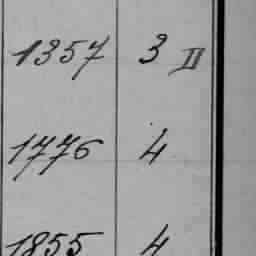 1357 3 II
1776 4
1855 4